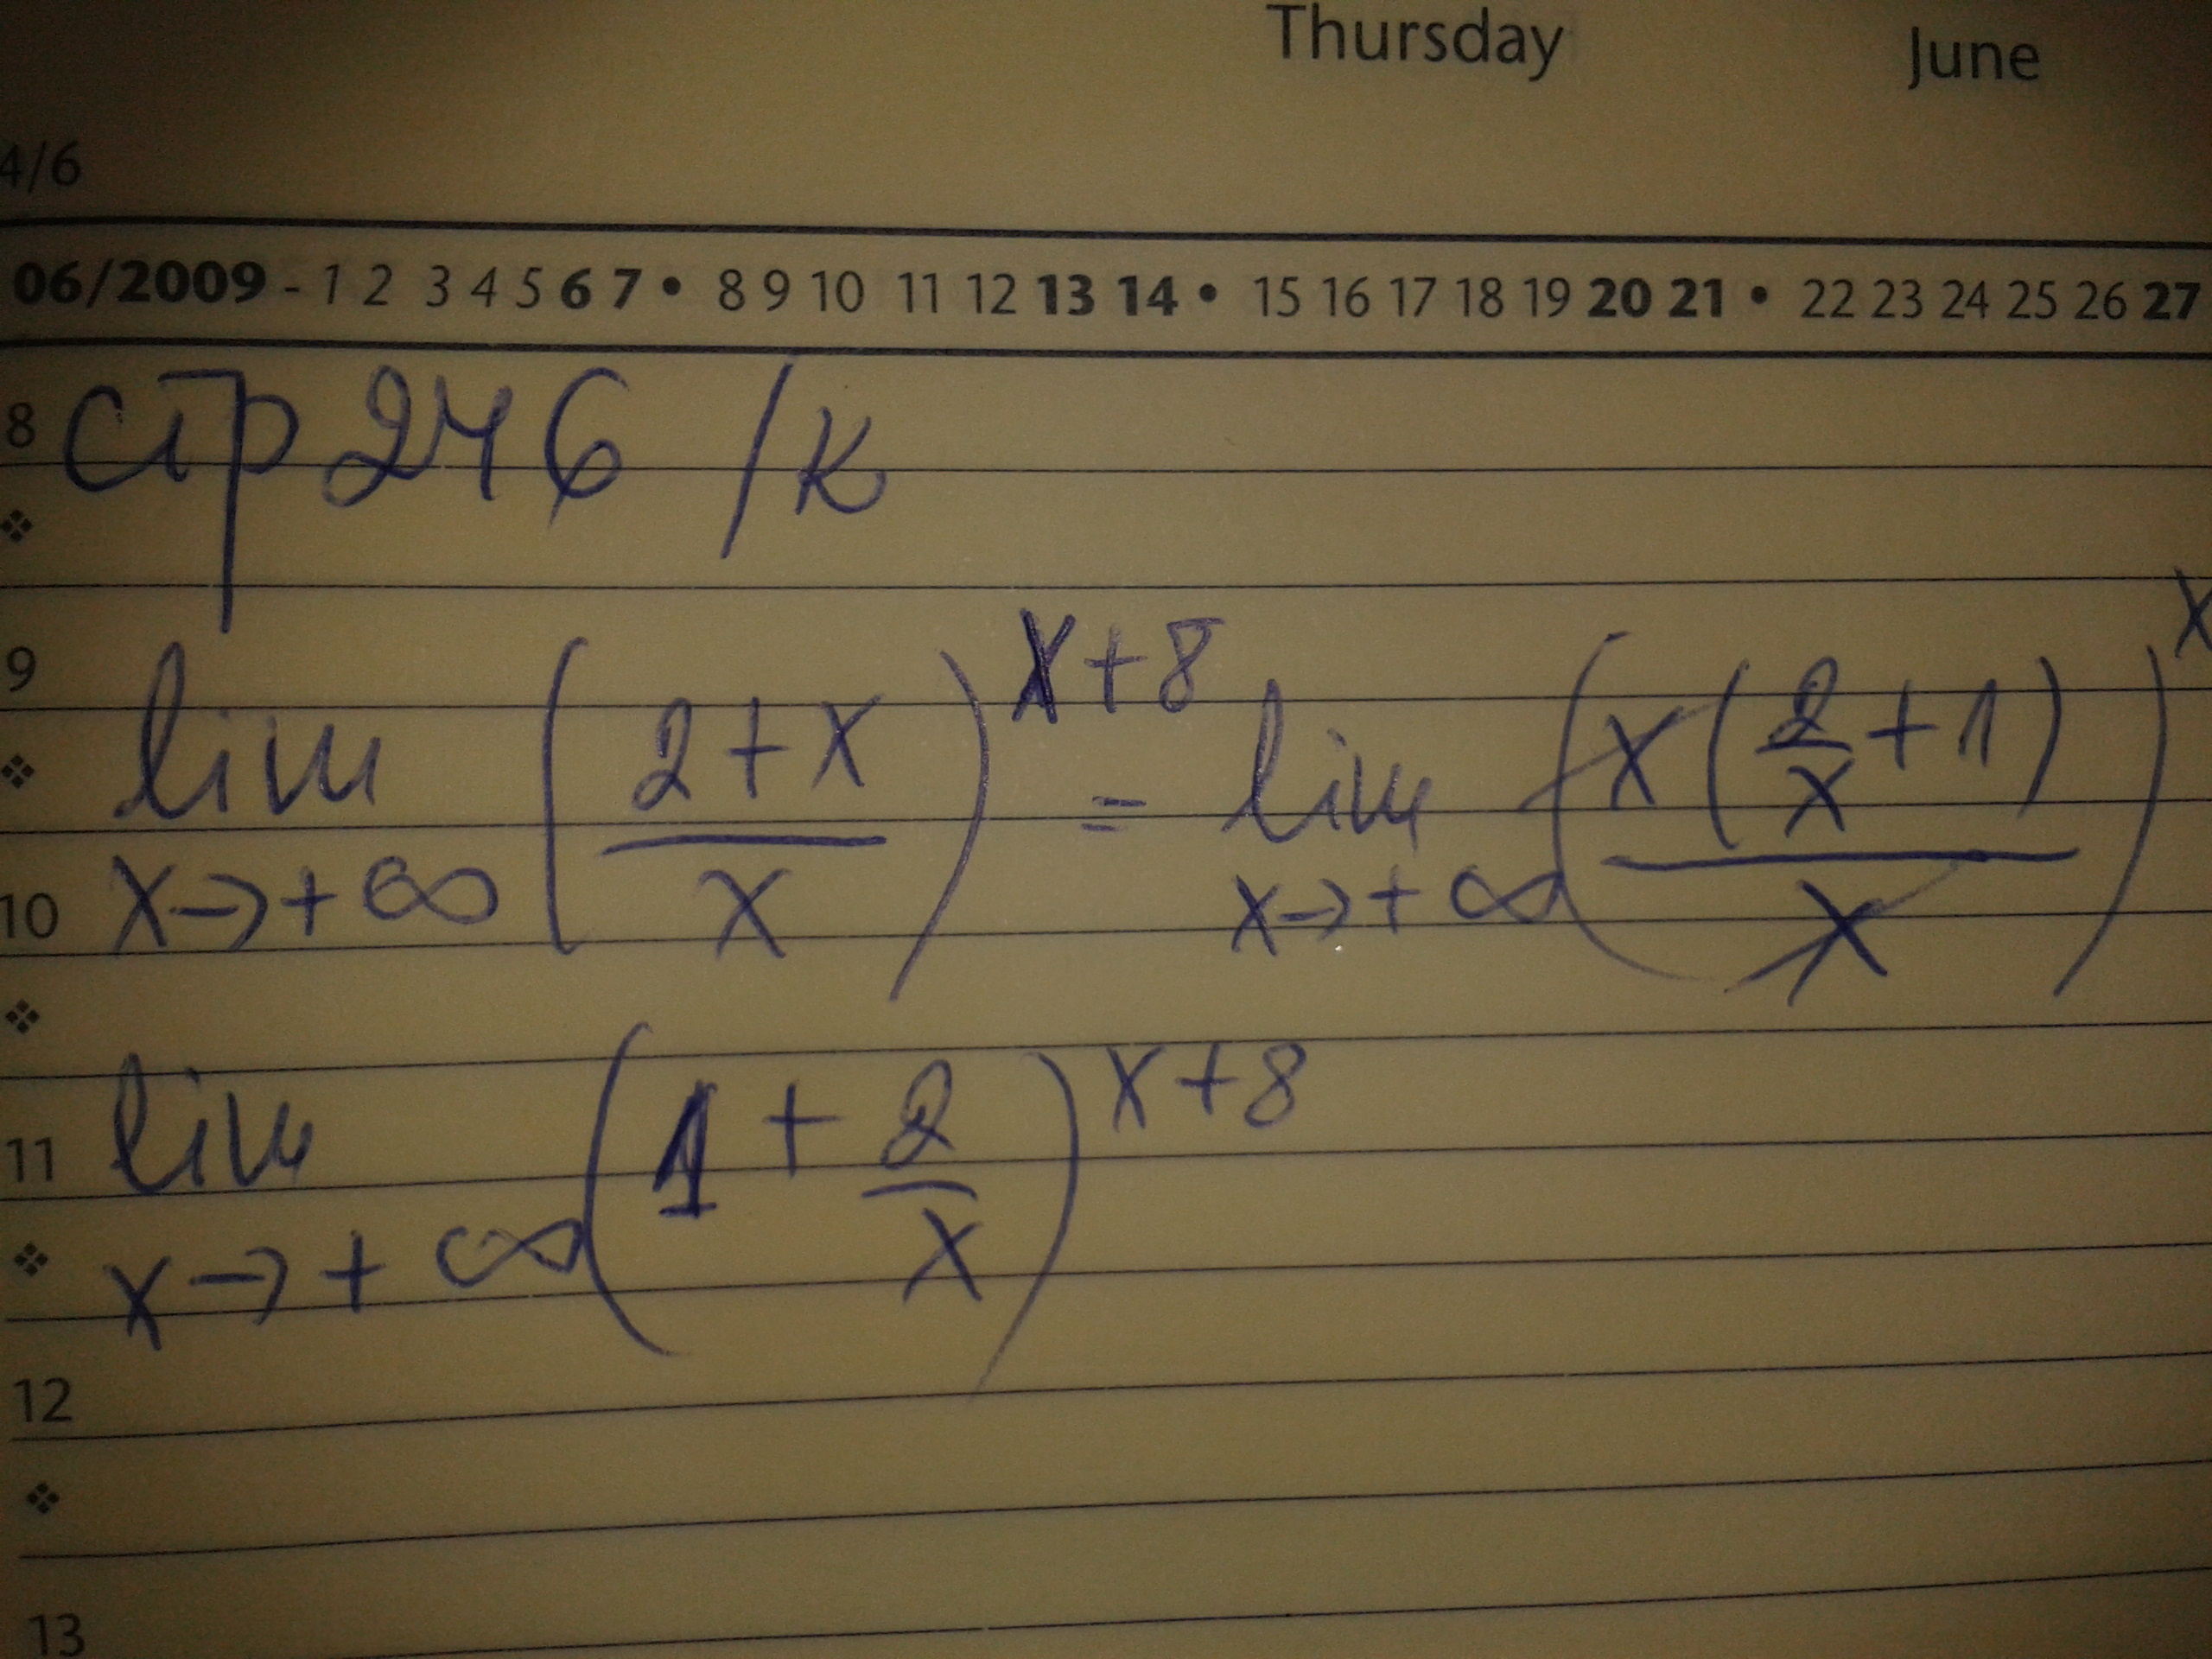 Thursday June
4/6
06/2009 - 1 2 3 4 5 6 7 • 8 9 10 11 12 13 14 • 15 16 17 18 19 20 21 • 22 23 24 25 26 27
8 стр 246 /к
9 lim x→+∞ ((2+x)/x)^(x+8) = lim x→+∞ (x(2/x+1)/x)^x
10
11 lim x→+∞ (1+2/x)^(x+8)
12
13